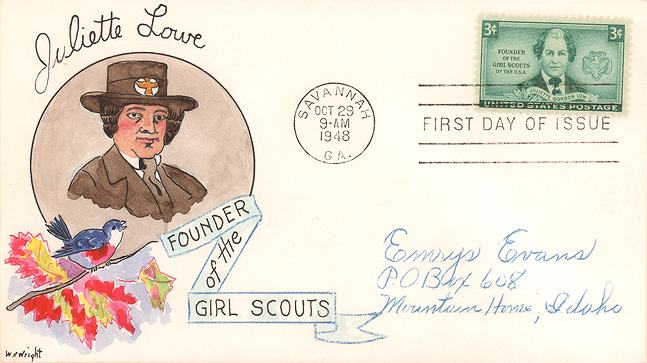 Juliette Lowe
FOUNDER
of the
GIRL SCOUTS
W.N. Wright
SAVANNAH
OCT 29
9-AM
1948
GA.
3¢
3¢
FOUNDER
OF THE
GIRL SCOUTS
OF THE U.S.A.
JULIETTE GORDON LOW
UNITED STATES POSTAGE
FIRST DAY OF ISSUE
Emrys Evans
P.O Box 608
Mountain Home, Idaho